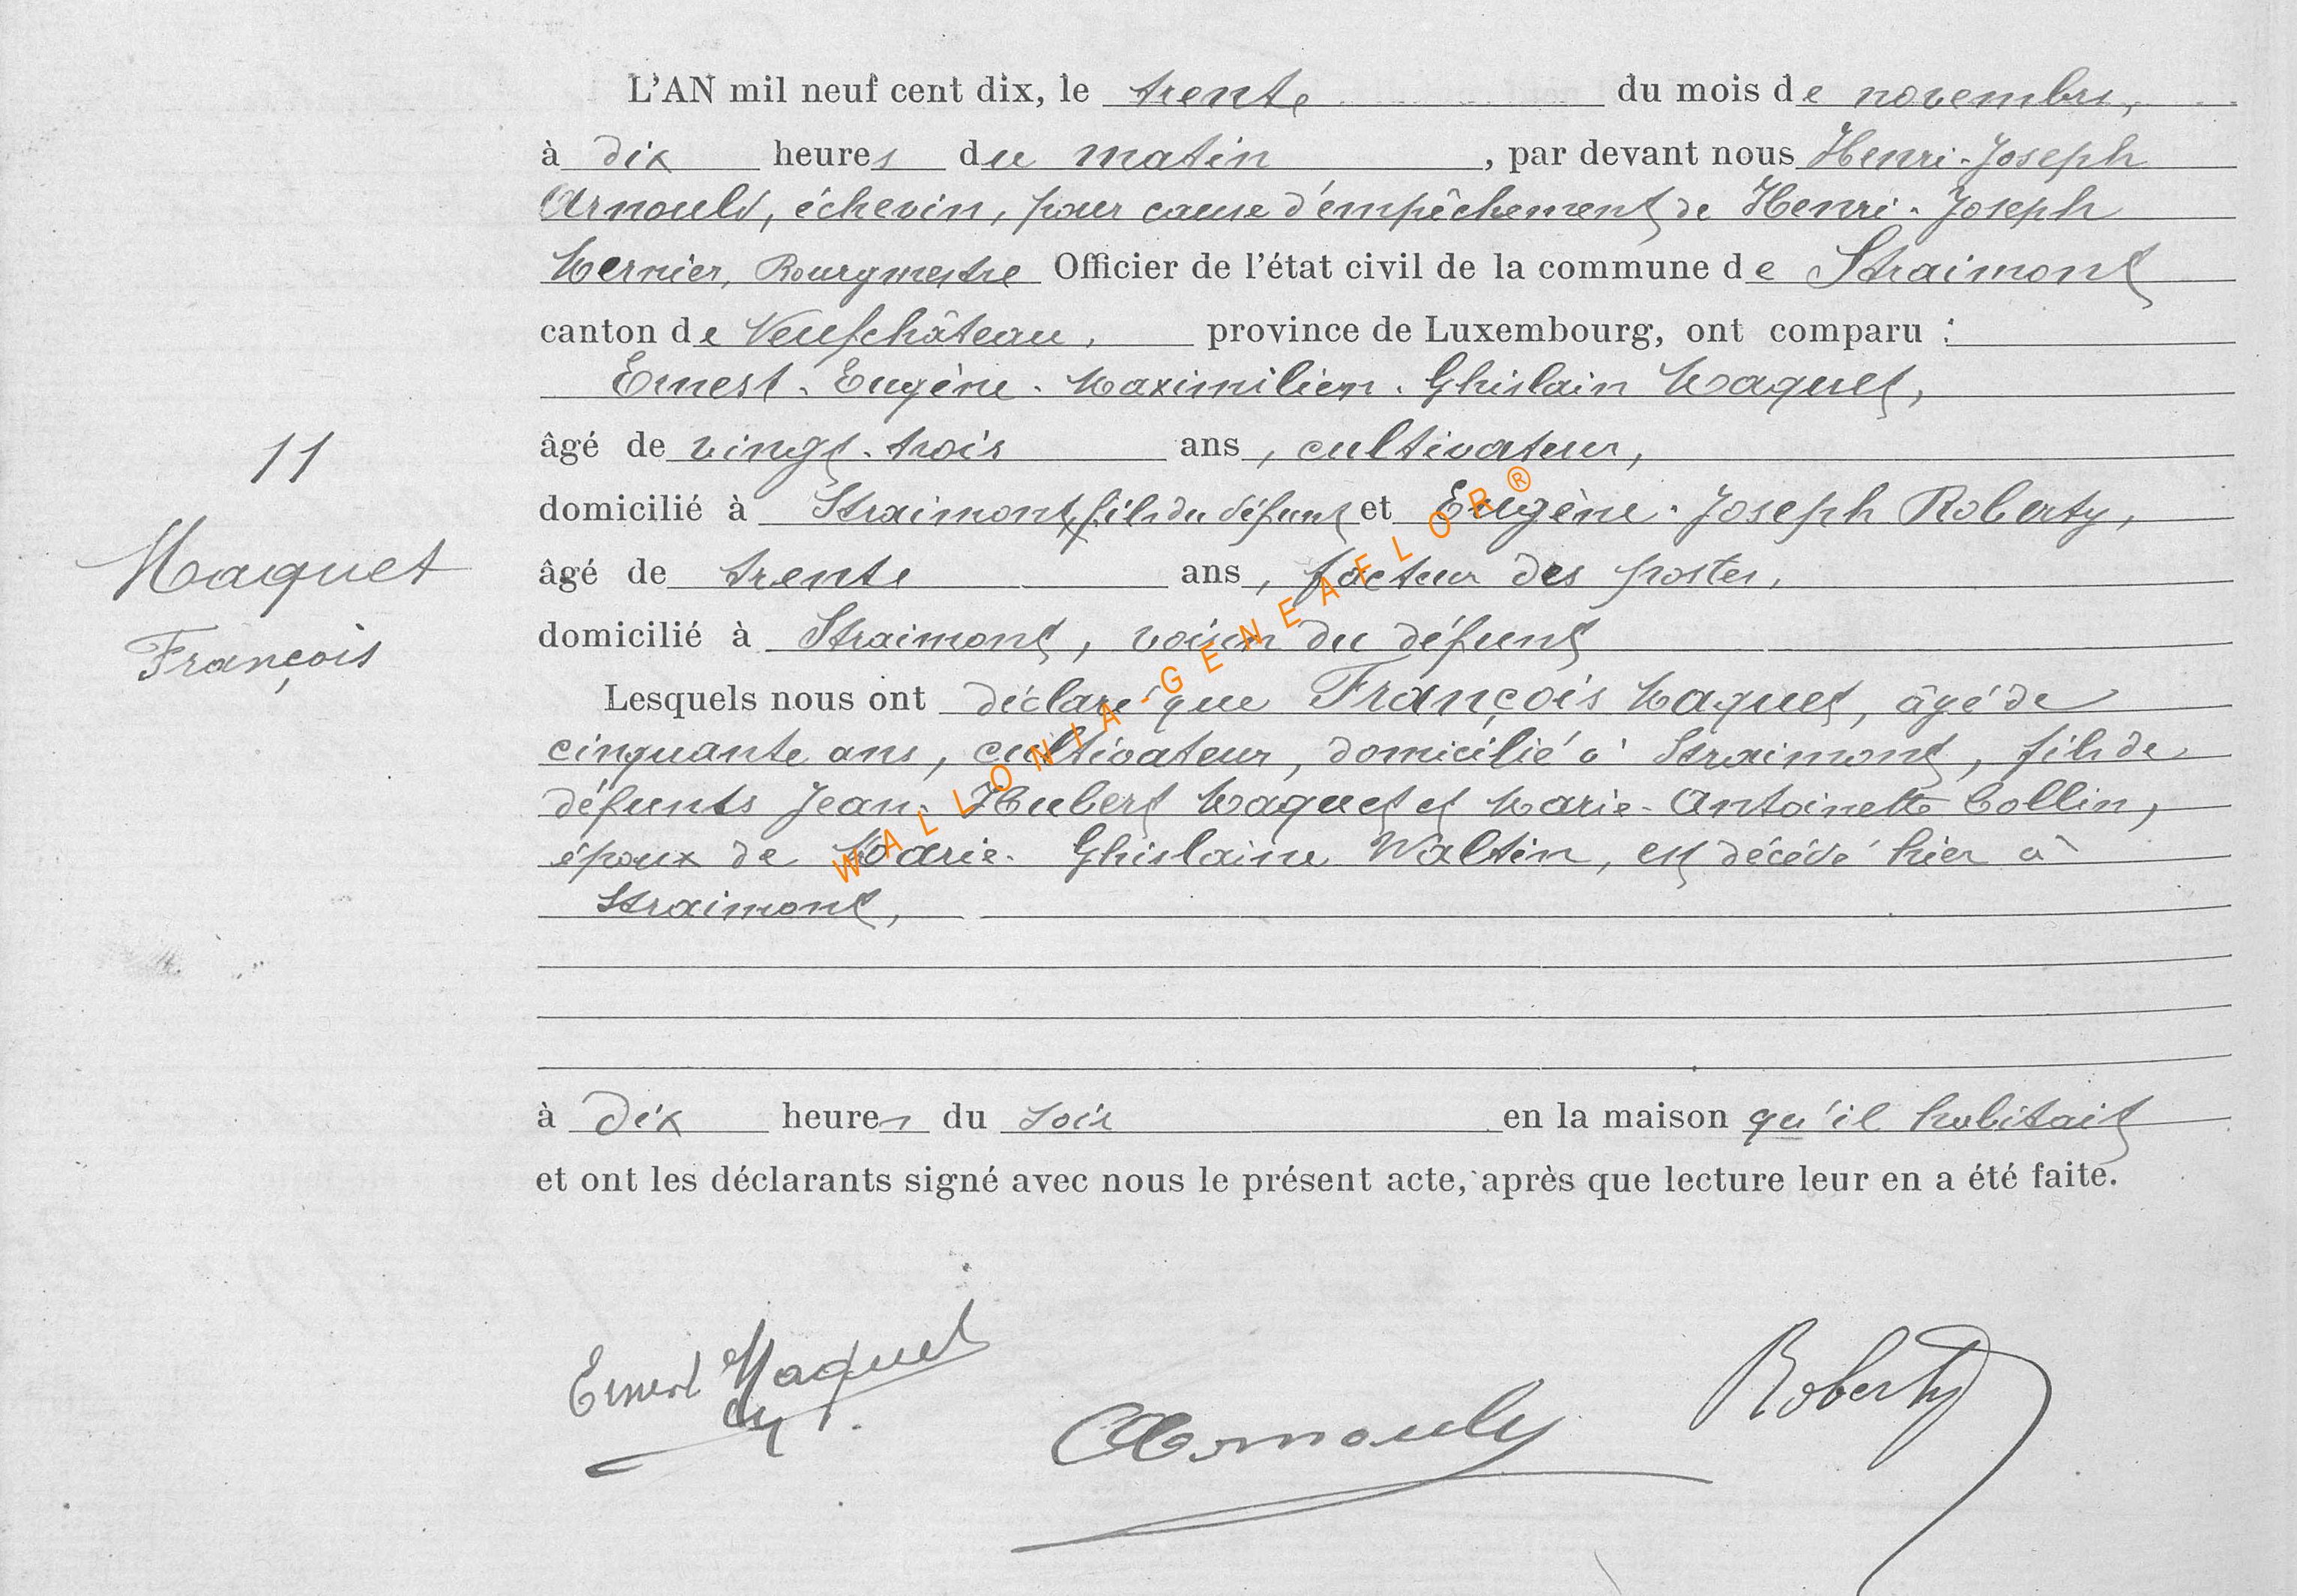 L'AN mil neuf cent dix, le trente du mois de novembre,
à dix heures du matin, par devant nous Henri-Joseph
Arnould, échevin, pour cause d'empêchement de Henri-Joseph
Mernier, Bourgmestre Officier de l'état civil de la commune de Straimont
canton de Neufchâteau, province de Luxembourg, ont comparu :
Ernest-Eugène-Maximilien-Ghislain Maquet,
11
âgé de vingt-trois ans, cultivateur,
domicilié à Straimont, fils du défunt et Eugène-Joseph Roberty,
Maquet
âgé de trente ans, facteur des postes,
François
domicilié à Straimont, voisin du défunt
Lesquels nous ont déclaré que François Maquet, âgé de
cinquante ans, cultivateur, domicilié à Straimont, fils de
défunts Jean-Hubert Maquet et Marie-Antoinette Collin,
époux de Marie-Ghislaine Waltin, est décédé hier à
Straimont,
à dix heures du soir en la maison qu'il habitait
et ont les déclarants signé avec nous le présent acte, après que lecture leur en a été faite.
Ernest Maquet
Arnould
Roberty
WALLONIA-GENEAFLOR®